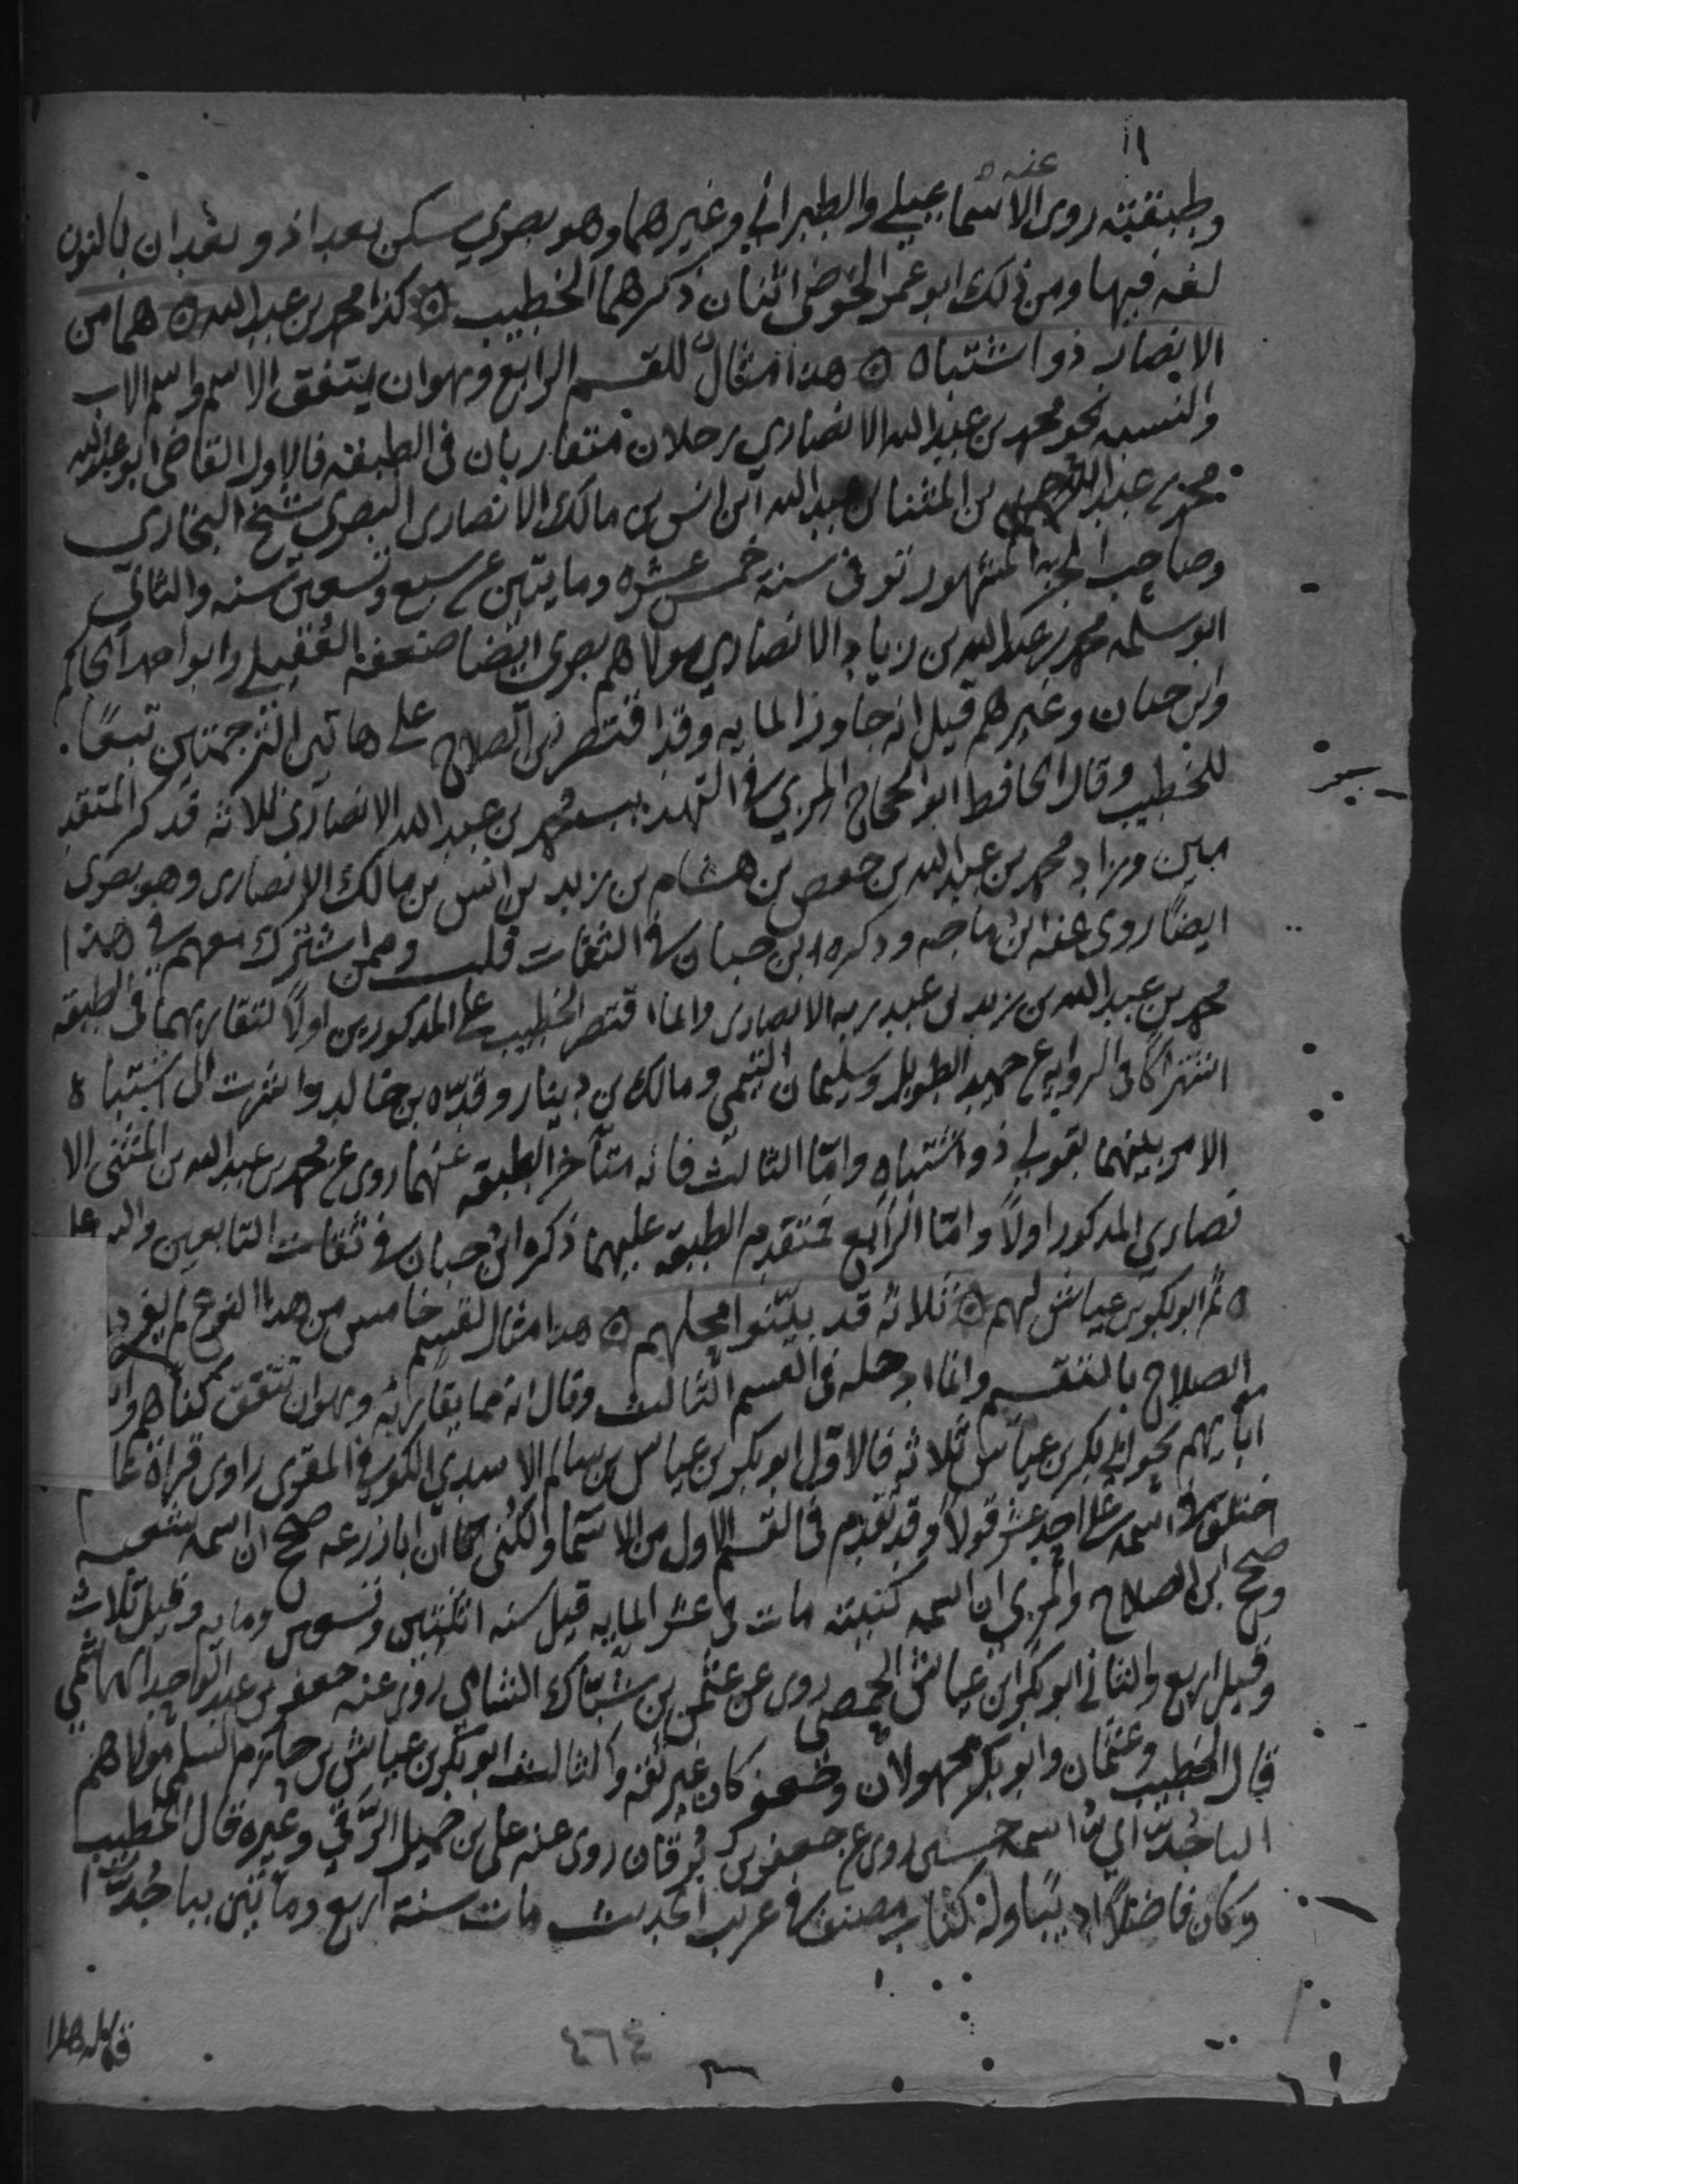 عنه
وطبقته روى الاسماعيلي والطبراني وغيرهما وهو بصري سكن بغداد وبغدان بالنون
لغه فيها ومن ذلك ابو عمر الحوضي اثنان ذكرهما الخطيب ۞ كذا محمد بن عبد الله ۞ هما من
الانصار ذو اشتباه ۞ هذا مثال للقسم الرابع وهو ان يتفق الاسم واسم الاب
والنسبه نحو محمد بن عبد الله الانصاري رجلان متقاربان في الطبقه فالاول القاضي ابو عبد الله
محمد بن عبد الله بن المثنا بن عبد الله ابن انس بن مالك الانصاري البصري شيخ البخاري
وصاحب الجزء المشهور توفى سنة خمس عشره ومايتين عن سبع وتسعين سنه والثاني
ابو سلمه محمد بن عبد الله بن زياد الانصاري مولاهم بصري ايضا ضعفه العقيلي وابو احمد الحاكم
وابن حبان وغيرهم قيل انه جاوز المايه وقد اقتصر ابن الصلاح على هاتين الترجمتين تبعًا
للخطيب وقال الحافظ ابو الحجاج المزي في التهذيب محمد بن عبد الله الانصاري ثلاثه قد ذكر المتقد
مين وزاد محمد بن عبد الله بن حفص بن هشام بن زيد بن انس بن مالك الانصاري وهو بصري
ايضًا روى عنه ابن ماجه وذكره ابن حبان في الثقات قلت وممن اشترك معهم في هذا
محمد بن عبد الله بن زيد بن عبد ربه الانصاري وانما اقتصر الخطيب على المذكورين اولًا لتقاربهما في الطبقه
اشتركا في الروايه عن حميد الطويل وسليمان التيمي ومالك بن دينار وقره بن خالد واشرت الى اشتباه
الامر بينهما بقولي ذو اشتباه وامّا الثالث فانه متأخر الطبقه عنهما روى عن محمد بن عبد الله بن المثنى الا
نصاري المذكور اولًا وامّا الرابع فمتقدم الطبقه عليهما ذكره ابن حبان في ثقات التابعين والله
۞ ثم ابو بكر بن عياش لهم ۞ ثلاثه قد بيّنوا محلهم ۞ هذا مثال لقسم خامس من هذا النوع لم يفرد
الصلاح بالتقسيم وانما ادخله في القسم الثالث وقال انه مما يقاربه وهو ان تتفق كناهم
ابايهم نحو ابي بكر بن عياش ثلاثه فالاوّل ابو بكر بن عياش بن سالم الاسدي الكوفي المقري راوى قراة عا
اختلف في اسمه على احد عشر قولًا وقد تقدم في القسم الاول من الاسما والكنى ان ابا زرعه صحح ان اسمه شعبه
وصحح ابن الصلاح والمزي ان اسمه كنيته مات في عشر المايه قيل سنه اثنتين وتسعين ومايه وقيل ثلاث
وقيل اربع والثاني ابو بكر ابن عياش الحمصي روى عن عثمن بن شباك الشامي روى عنه جعفر بن عبد الواحد الهاشمي
قال الخطيب وعثمان وابو بكر مجهولان وجعفر كان غير ثقه والثالث ابو بكر بن عياش بن حازم السلمي مولاهم
الباجُدّاي اسمه حسين روى عن جعفر بن بُرقان روى عنه على بن جميل الرَّقي وغيره قال الخطيب
وكان فاضلًا اديبًا وله كتاب مصنف في غريب الحديث مات سنة اربع ومائتين بباجُدّا
٤٦٤